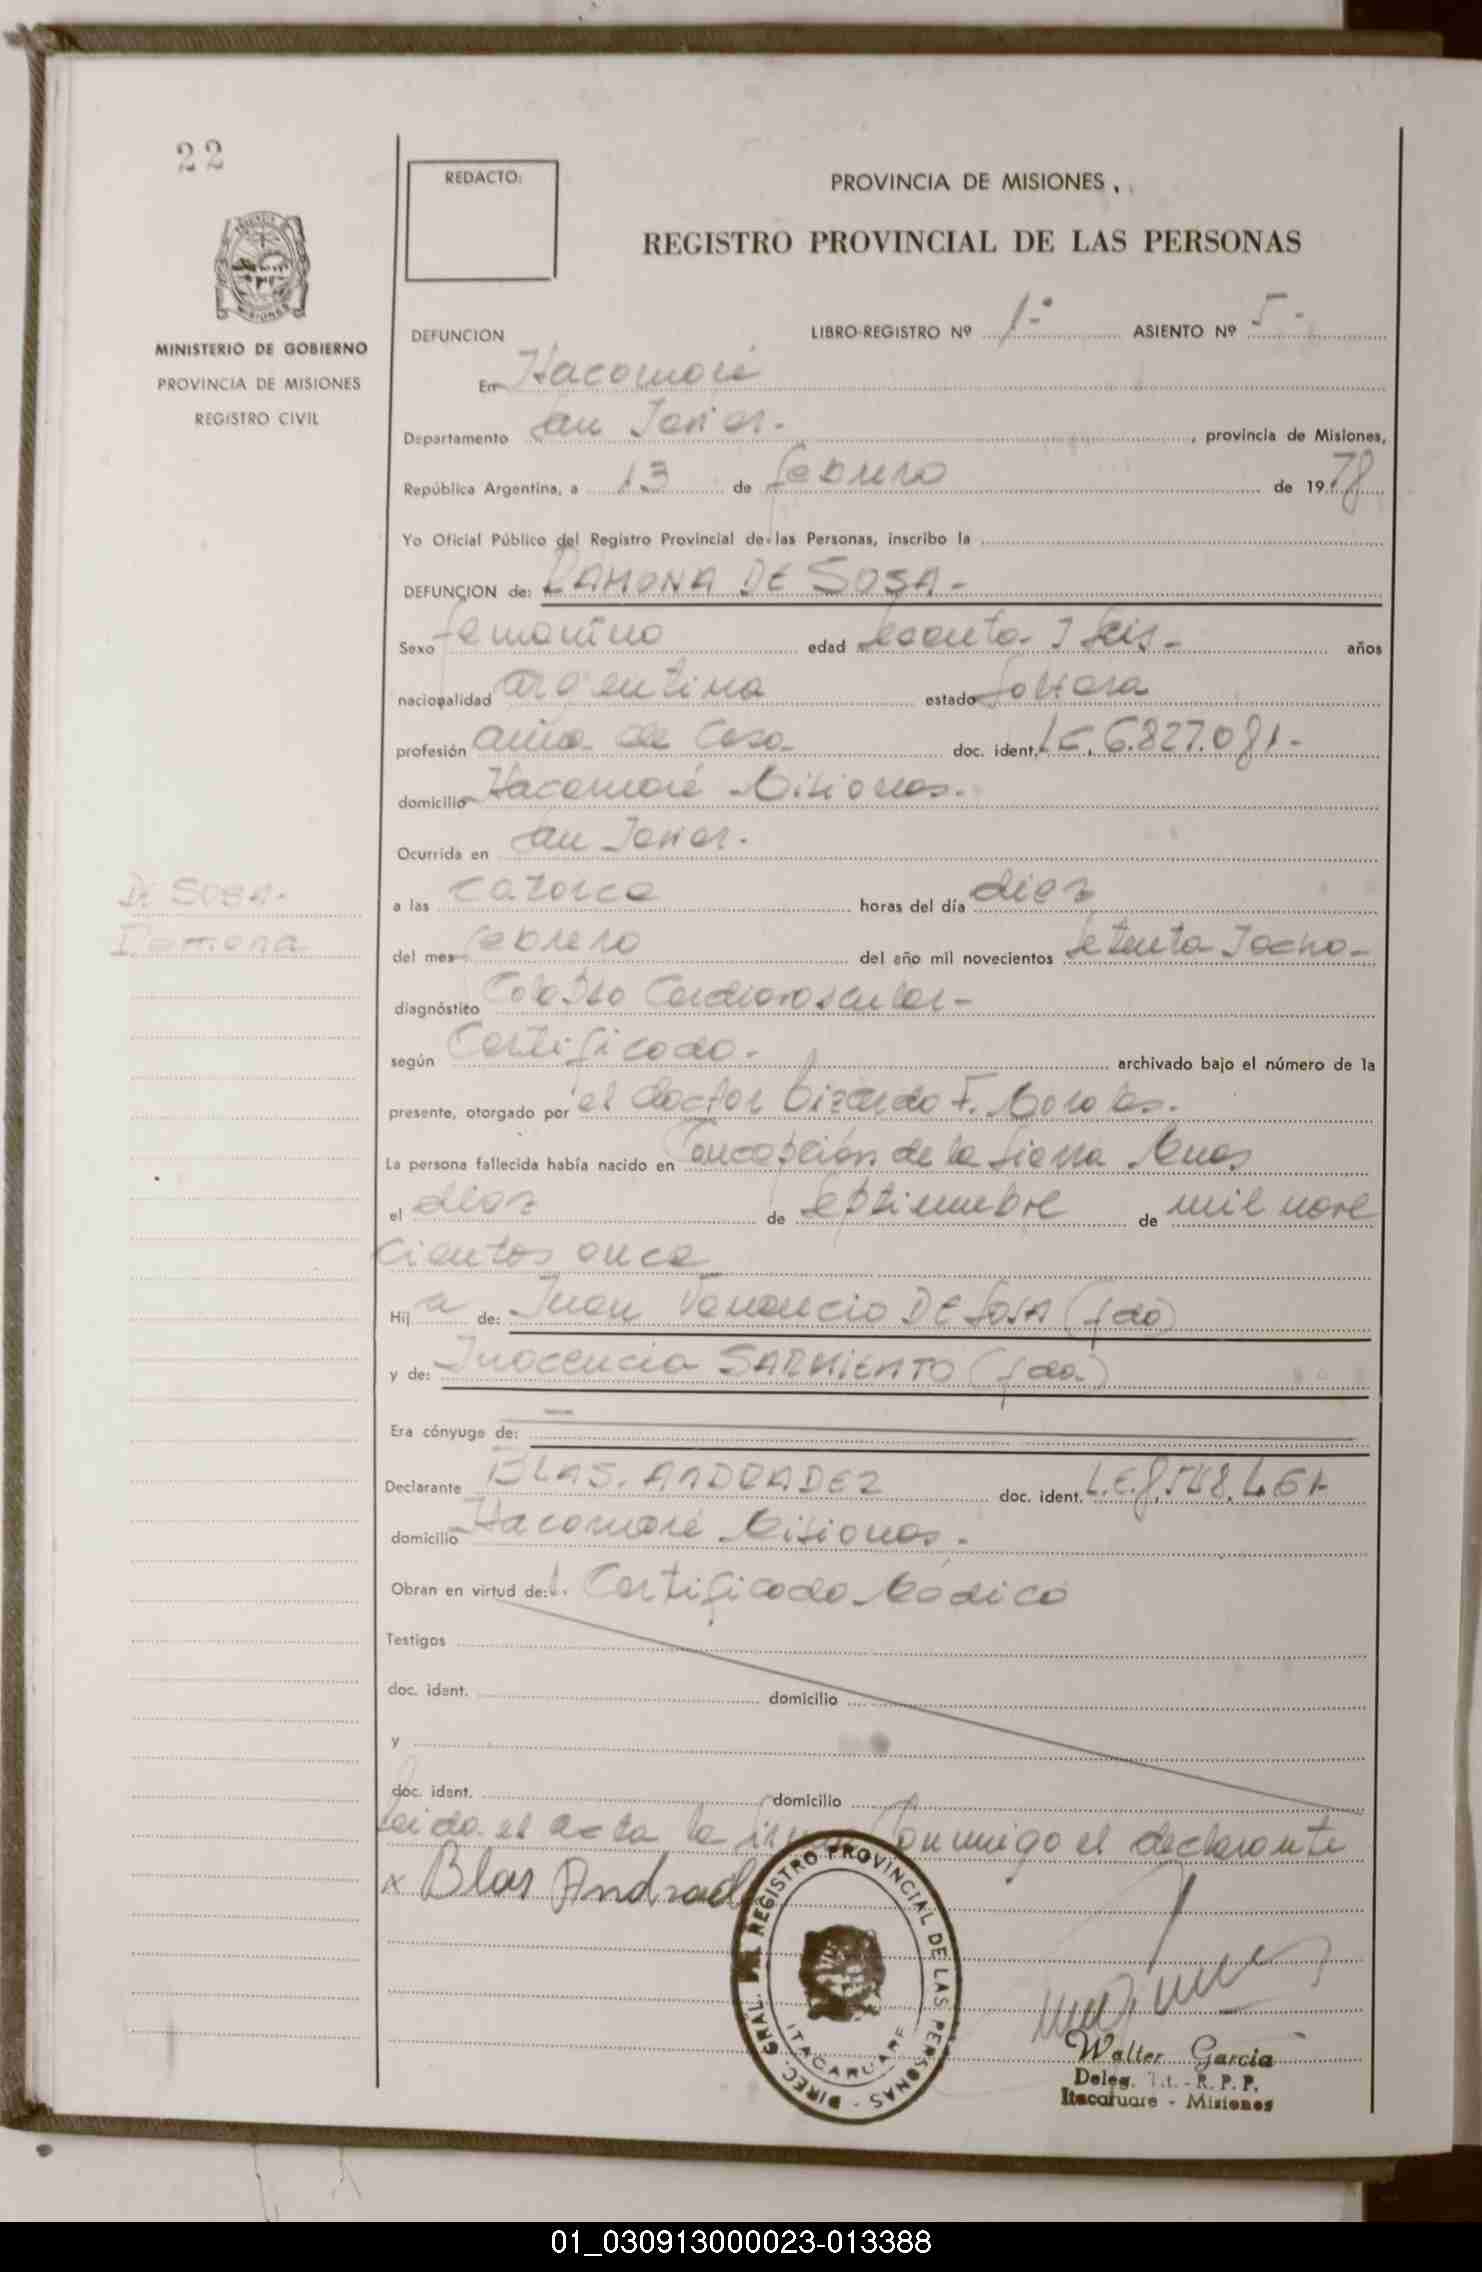 22
REDACTO:
PROVINCIA DE MISIONES
REGISTRO PROVINCIAL DE LAS PERSONAS
MINISTERIO DE GOBIERNO
PROVINCIA DE MISIONES
REGISTRO CIVIL
DEFUNCION LIBRO-REGISTRO Nº 1º- ASIENTO Nº 5-
En Itacaruaré
Departamento San Javier- , provincia de Misiones,
República Argentina, a 13 de febrero de 1978
Yo Oficial Público del Registro Provincial de las Personas, inscribo la
DEFUNCION de: RAMONA DE SOSA-
Sexo femenino edad Sesenta y Seis- años
nacionalidad argentina estado Soltera
profesión ama de Casa doc. ident. 6.827.081-
domicilio Itacaruaré Misiones.
Ocurrida en San Javier.
De Sosa-
Ramona
a las catorce horas del día diez
del mes febrero del año mil novecientos Setenta y ocho-
diagnóstico Colapso Cardiovascular-
según Certificado. archivado bajo el número de la
presente, otorgado por el doctor Lizardo F. Morales.
La persona fallecida había nacido en Concepción de la Sierra Mnes
el diez de Septiembre de mil nove
cientos once
Hija de: Juan Venancio DE SOSA (fdo)
y de: Inocencia SARMIENTO (fda.)
Era cónyuge de:
Declarante BLAS. ANDRADEZ doc. ident. L.E.
domicilio Itacaruaré Misiones.
Obran en virtud de: Certificado Médico
Testigos
doc. ident. domicilio
y
doc. ident. domicilio
leida el acta la firma Conmigo el declarante
x Blas Andrad
DIREC. GRAL. DEL REGISTRO PROVINCIAL DE LAS PERSONAS -
ITACARUARE
Walter Garcia
Deleg. Tit. - R. P. P.
Itacaruare - Misiones
01_030913000023-013388